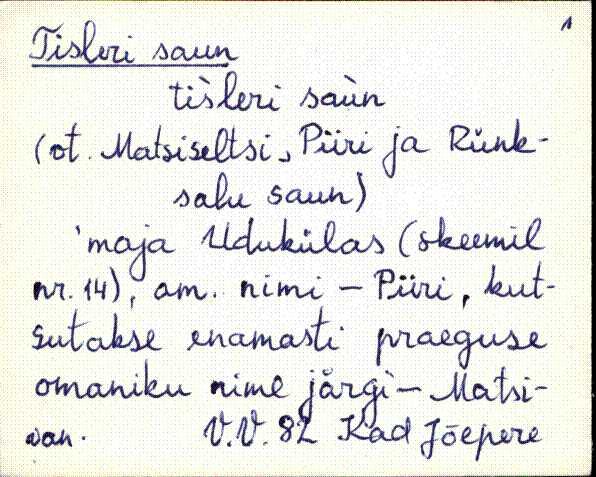 1
Tisleri saun
tìsleri saùn
(ot. Matsiseltsi, Piiri ja Rünk-
salu saun)
'maja Udukülas (skeemil
nr. 14), am. nimi – Piiri, kut-
sutakse enamasti praeguse
omaniku nime järgi – Matsi-
V.V. 82 Kad Jõepere